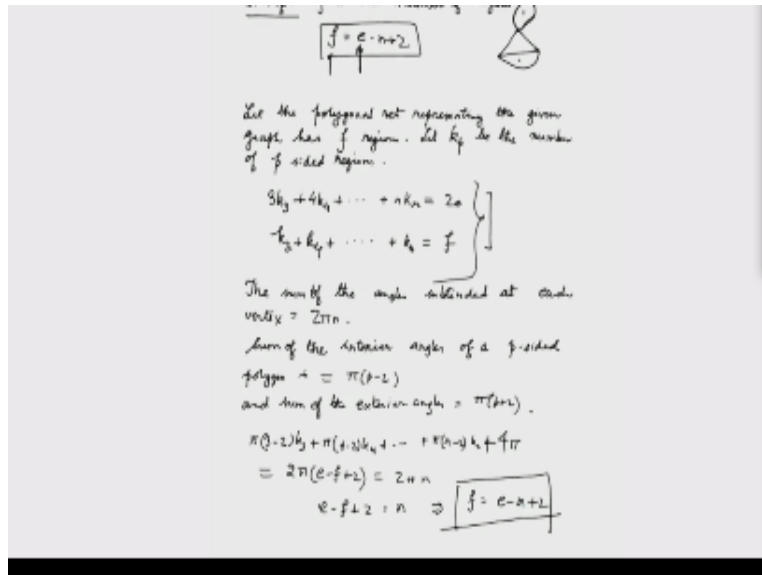 f = e-n+2
Let the polygonal net representing the given
graph has f region. Let kp be the number
of p sided region.
3k3 + 4k4 + ... + nkn = 2e
k3 + k4 + ..... + kn = f
The sum of the angles subtended at each
vertex = 2πn.
Sum of the interior angles of a p-sided
polygon = π(p-2)
and sum of the exterior angles = π(p+2).
π(3-2)k3 + π(4-2)k4 + ... + π(n-2)kn + 4π
= 2π(e-f+2) = 2πn
e-f+2 = n ⇒ f = e-n+2